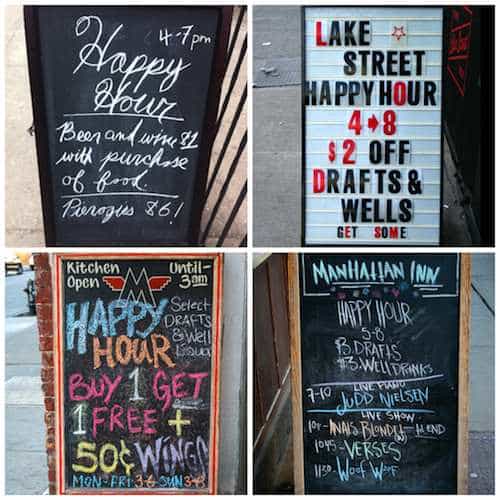 4-7pm
Happy
Hour
Beer and wine $1
with purchase
of food.
Pierogies $6!
LAKE
STREET
HAPPY HOUR
4➔8
$2 OFF
DRAFTS &
WELLS
GET SOME
Kitchen Open
Until - 3am
HAPPY
HOUR
Select
DRAFTS
& Well
Liquor
BUY 1 GET
1 FREE +
50¢ WINGS
MON-FRI 3-8 SUN 3-8
MANHATTAN INN
HAPPY HOUR
5-8
$3. DRAFTS
$3. WELL DRINKS
LIVE PIANO
7-10 JUDD NIELSEN
LIVE SHOW
1045 - VERSES
1130 - WOOF WOOF